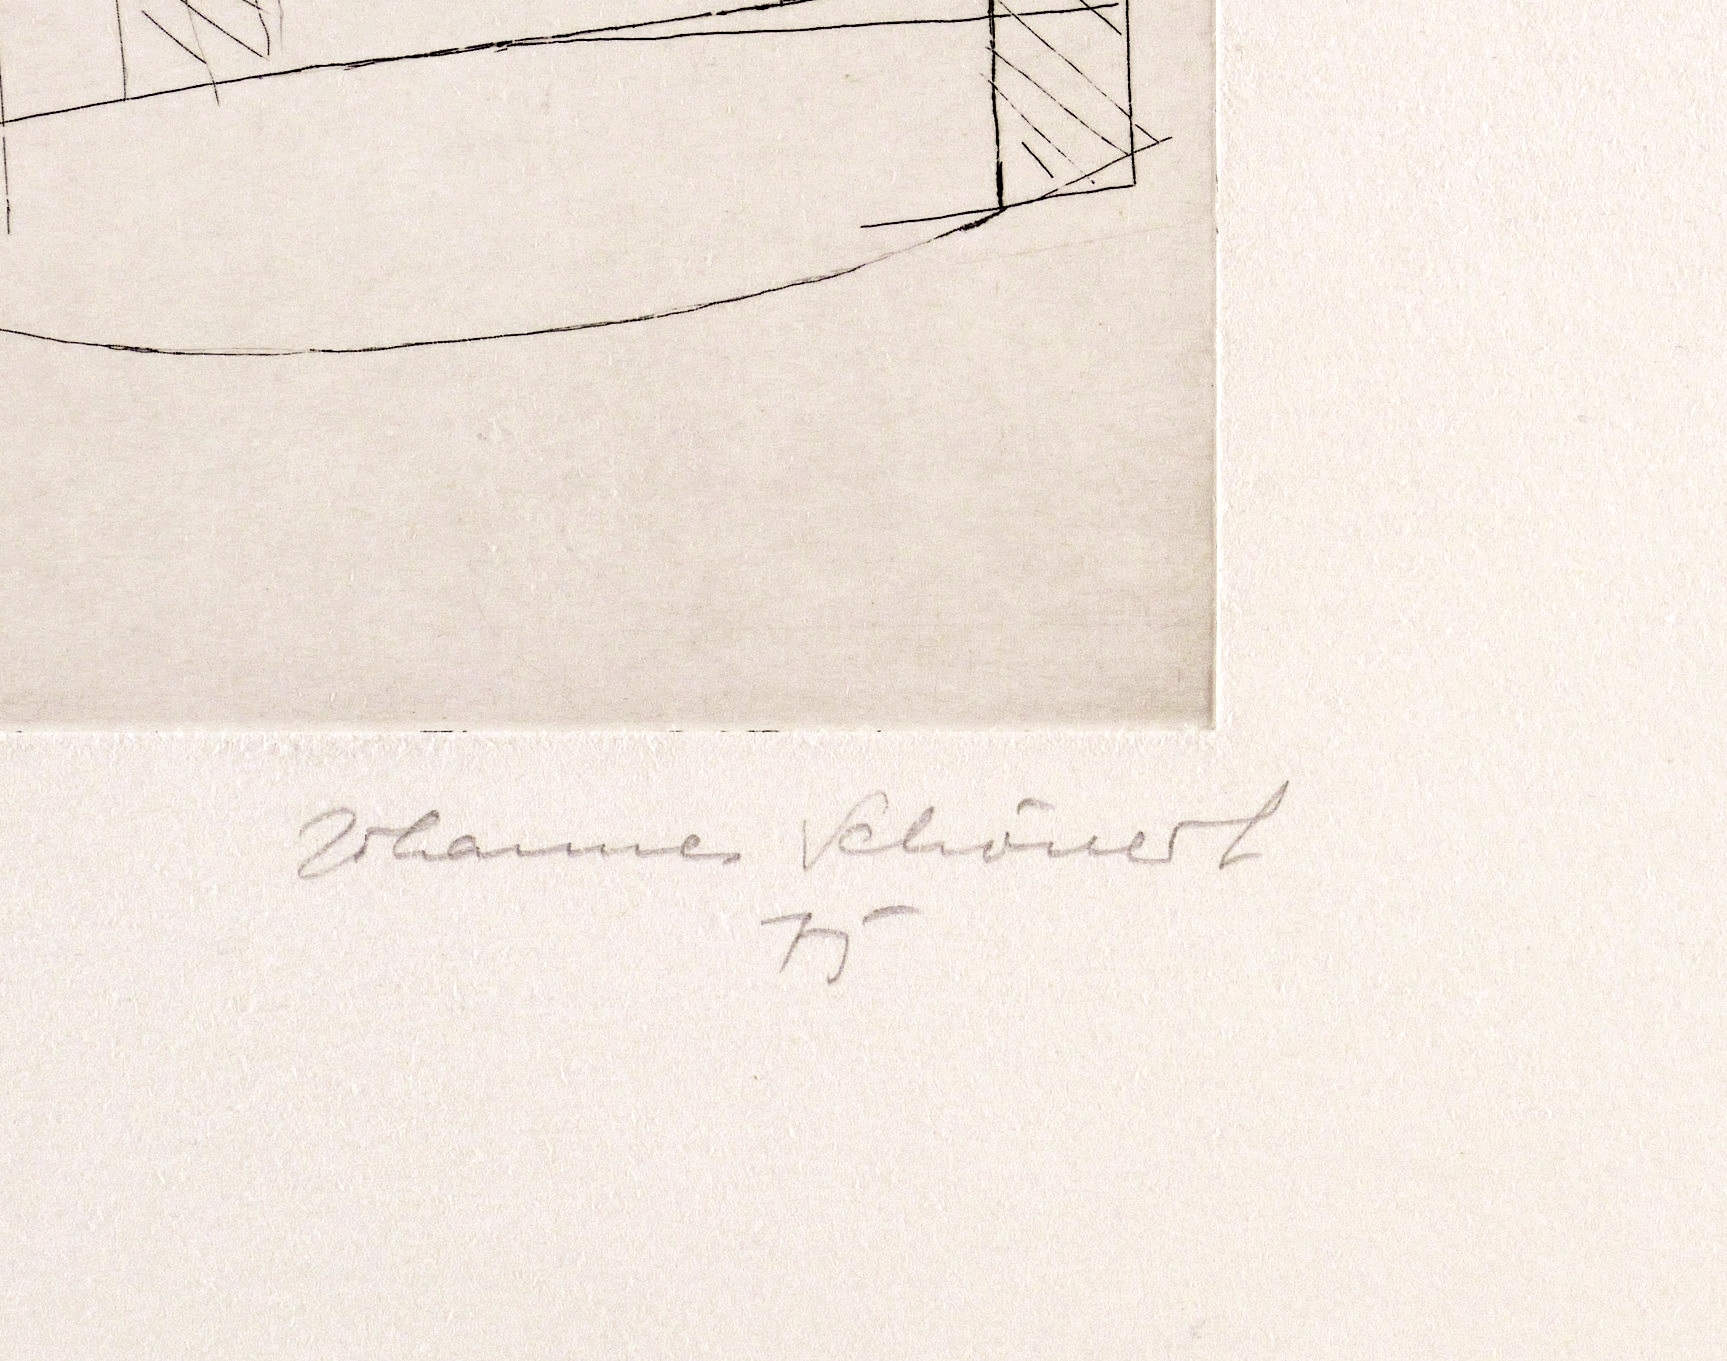 Johannes Schönert
75